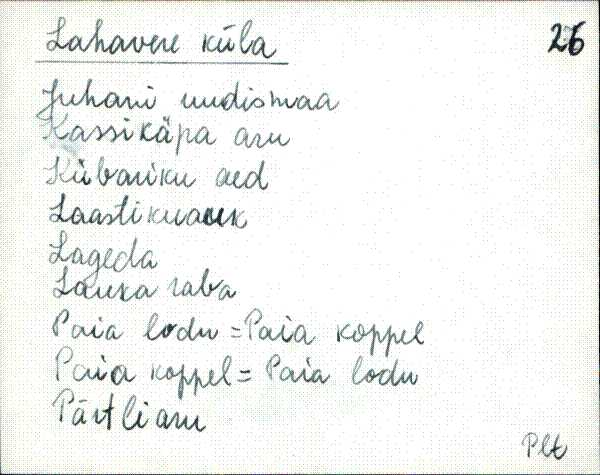 Lahavere küla
26
Juhani uudismaa
Kassikäpa aru
Kübariku aed
Laastikuauk
Lageda
Lauka raba
Paia lodu = Paia koppel
Paia koppel = Paia lodu
Pärtli aru
Plt